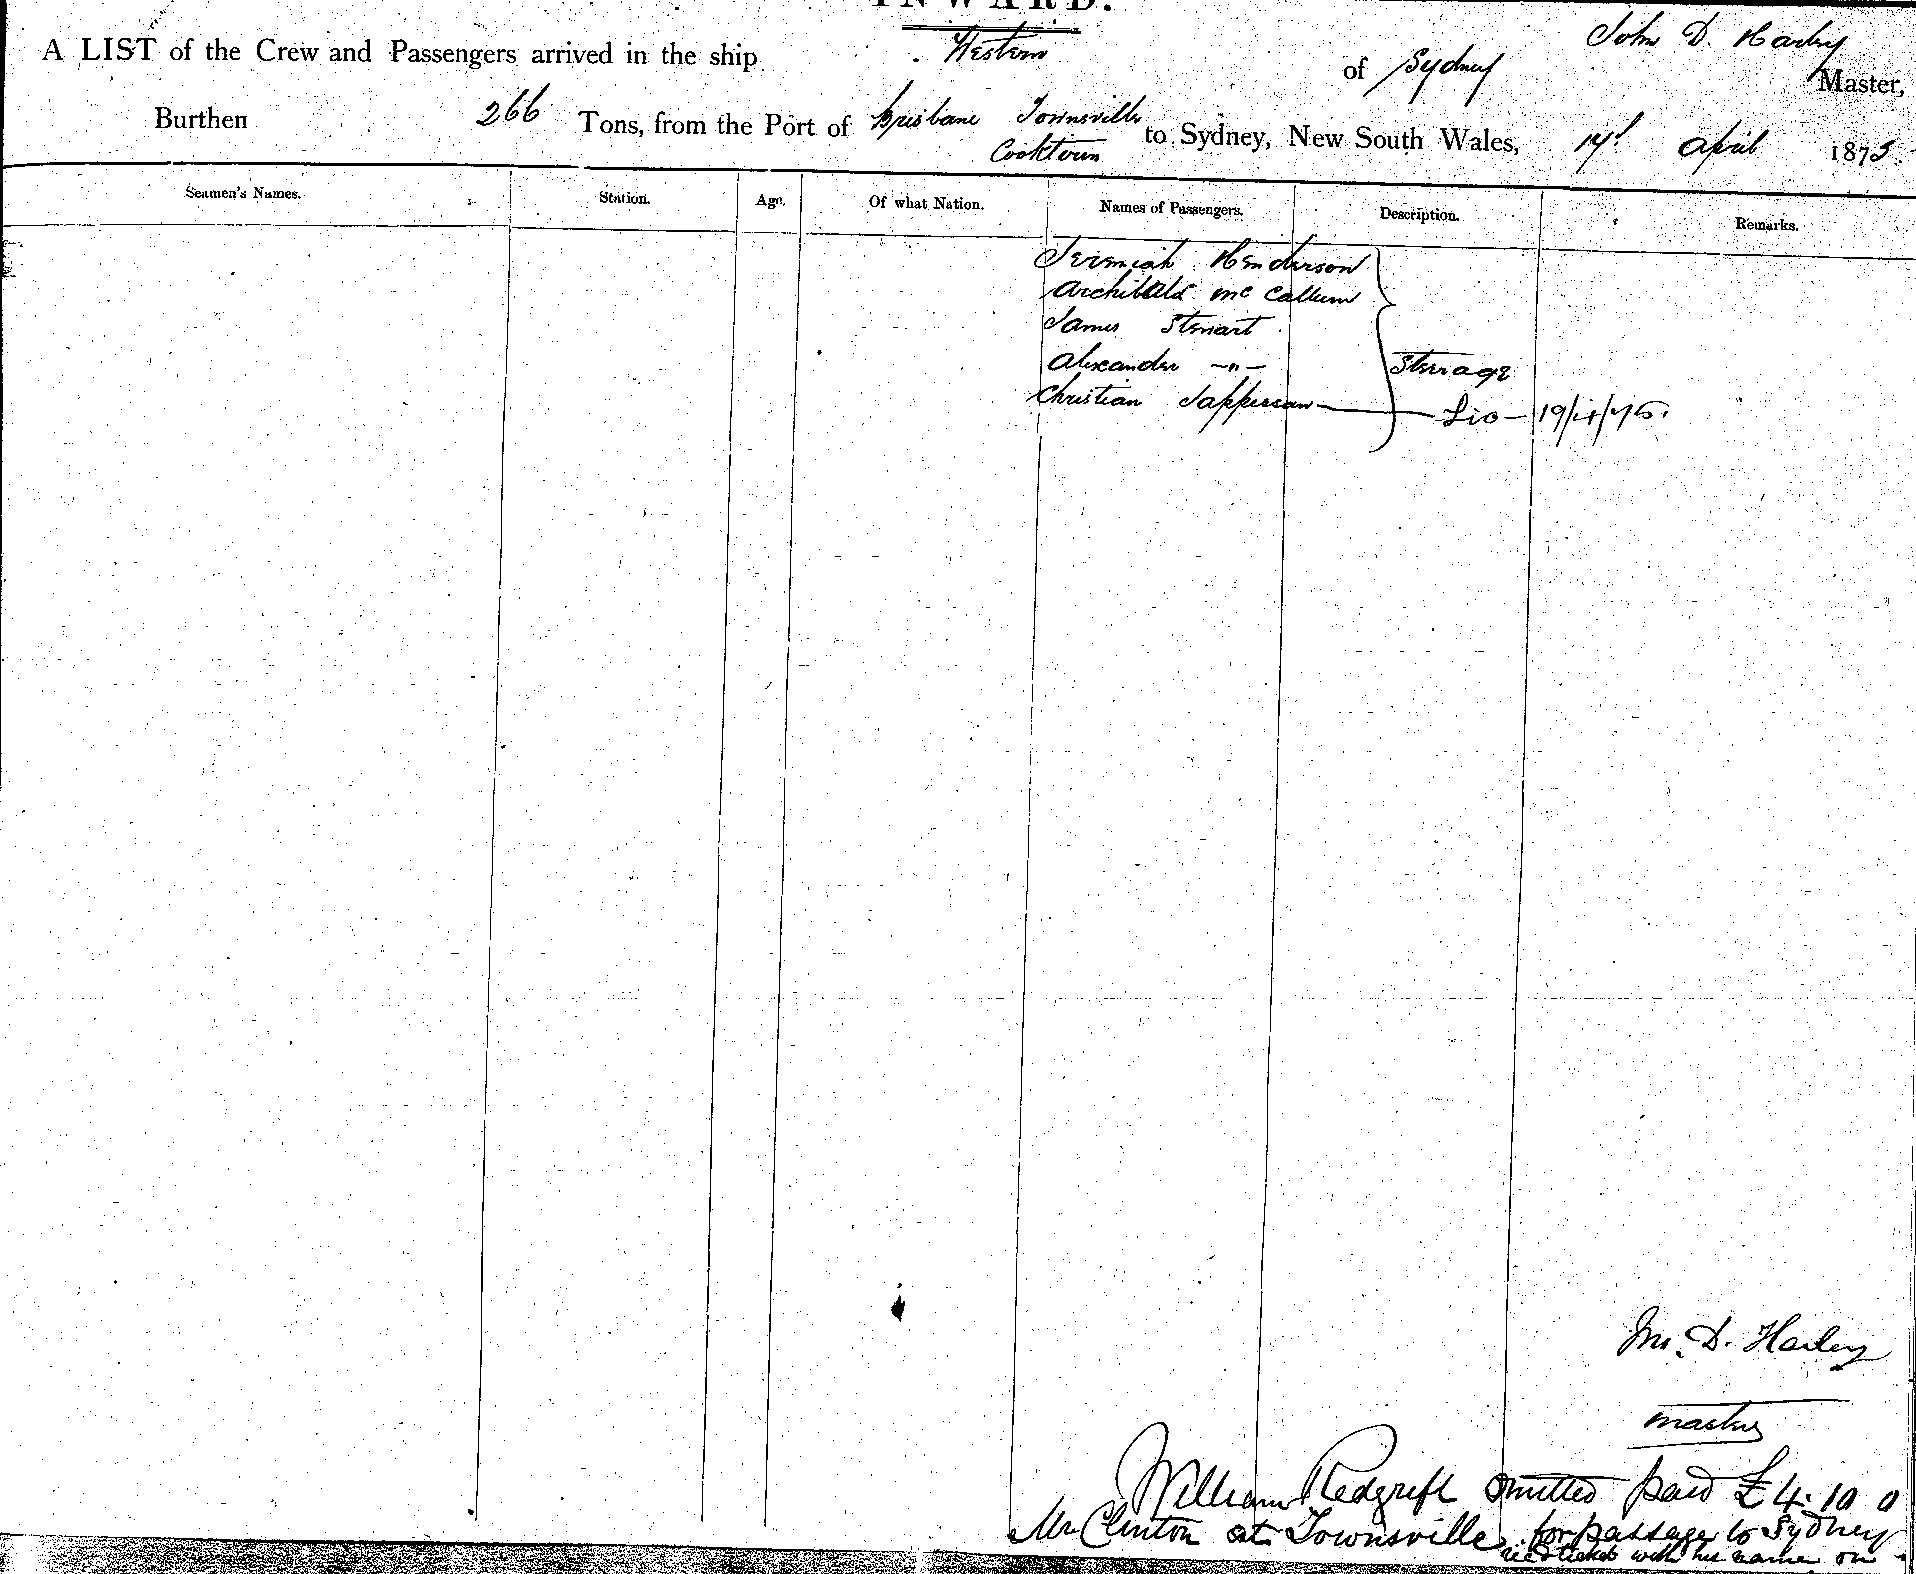 INWARD.
A LIST of the Crew and Passengers arrived in the ship Western of Sydney John D. Harley Master,
Burthen 266 Tons, from the Port of Brisbane Townsville Cooktown to Sydney, New South Wales, April 1875
Seamen's Names. Station. Age. Of what Nation. Names of Passengers. Description. Remarks.
Jeremiah Henderson
Archibald Mc Callum
James Stewart
Alexander -"- Steerage
Christian Jappersan 19/4/75.
Jno. D. Harley
master
William Redgrift omitted paid £4.10 0
Mr Clinton at Townsville for passage to Sydney
ticket with his name on